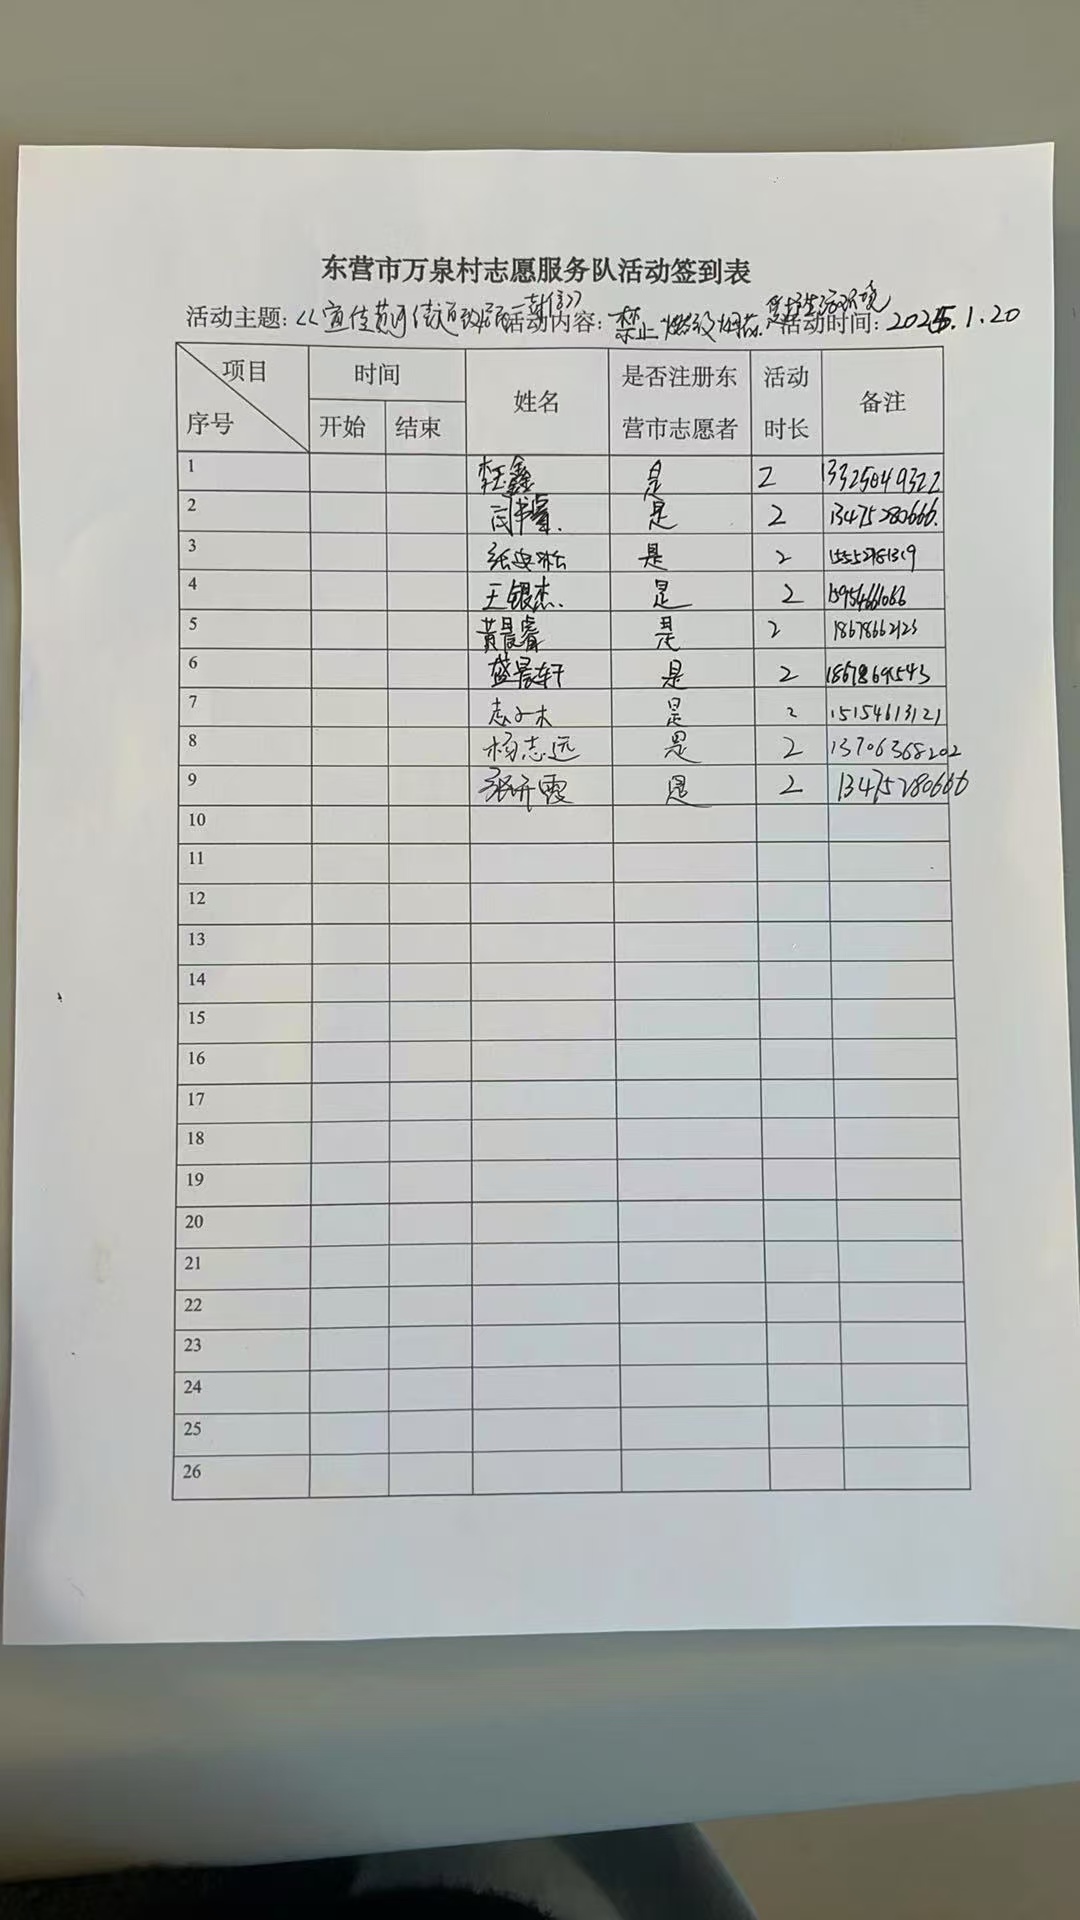 东营市万泉村志愿服务队活动签到表
活动主题：《宣传黄河街道致 一封信》 活动内容：禁止燃放烟花 爱护生活环境 活动时间：2025.1.20
项目 时间 姓名 是否注册东营市志愿者 活动时长 备注
序号 开始 结束
1 李玉鑫 是 2 13325049322
2 闫书睿. 是 2 13475280666.
3 张 淞 是 2 15552781319
4 王银杰. 是 2
5 黄晨睿 是 2 18678662123
6 盛晨轩 是 2 18678691543
7 是 2 15154613121
8 杨志远 是 2 13706368202
9 张开霞 是 2 13475280666
10
11
12
13
14
15
16
17
18
19
20
21
22
23
24
25
26